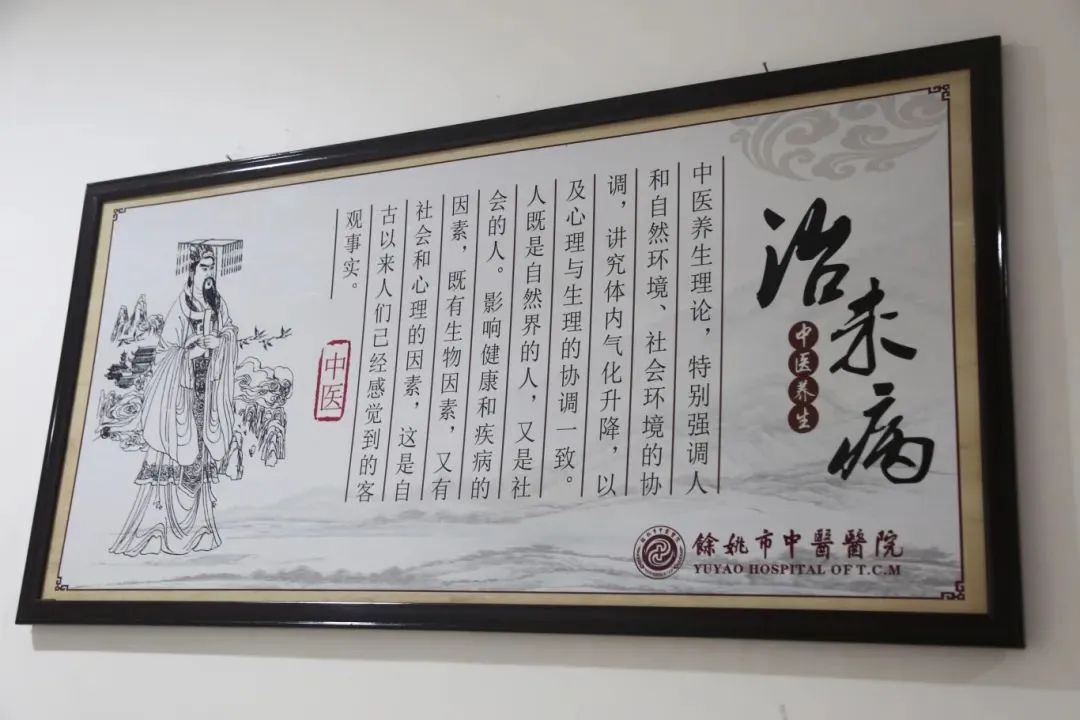 治未病
中医养生
中医养生理论，特别强调人
和自然环境、社会环境的协
调，讲究体内气化升降，以
及心理与生理的协调一致。
人既是自然界的人，又是社
会的人。影响健康和疾病的
因素，既有生物因素，又有
社会和心理的因素，这是自
古以来人们已经感觉到的客
观事实。
中医
餘姚市中醫醫院
YUYAO HOSPITAL OF T.C.M